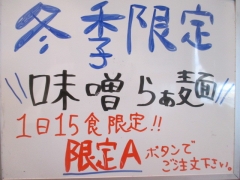 冬季限定
味噌らぁ麺
1日15食限定!!
限定Aボタンで
ご注文下さい。